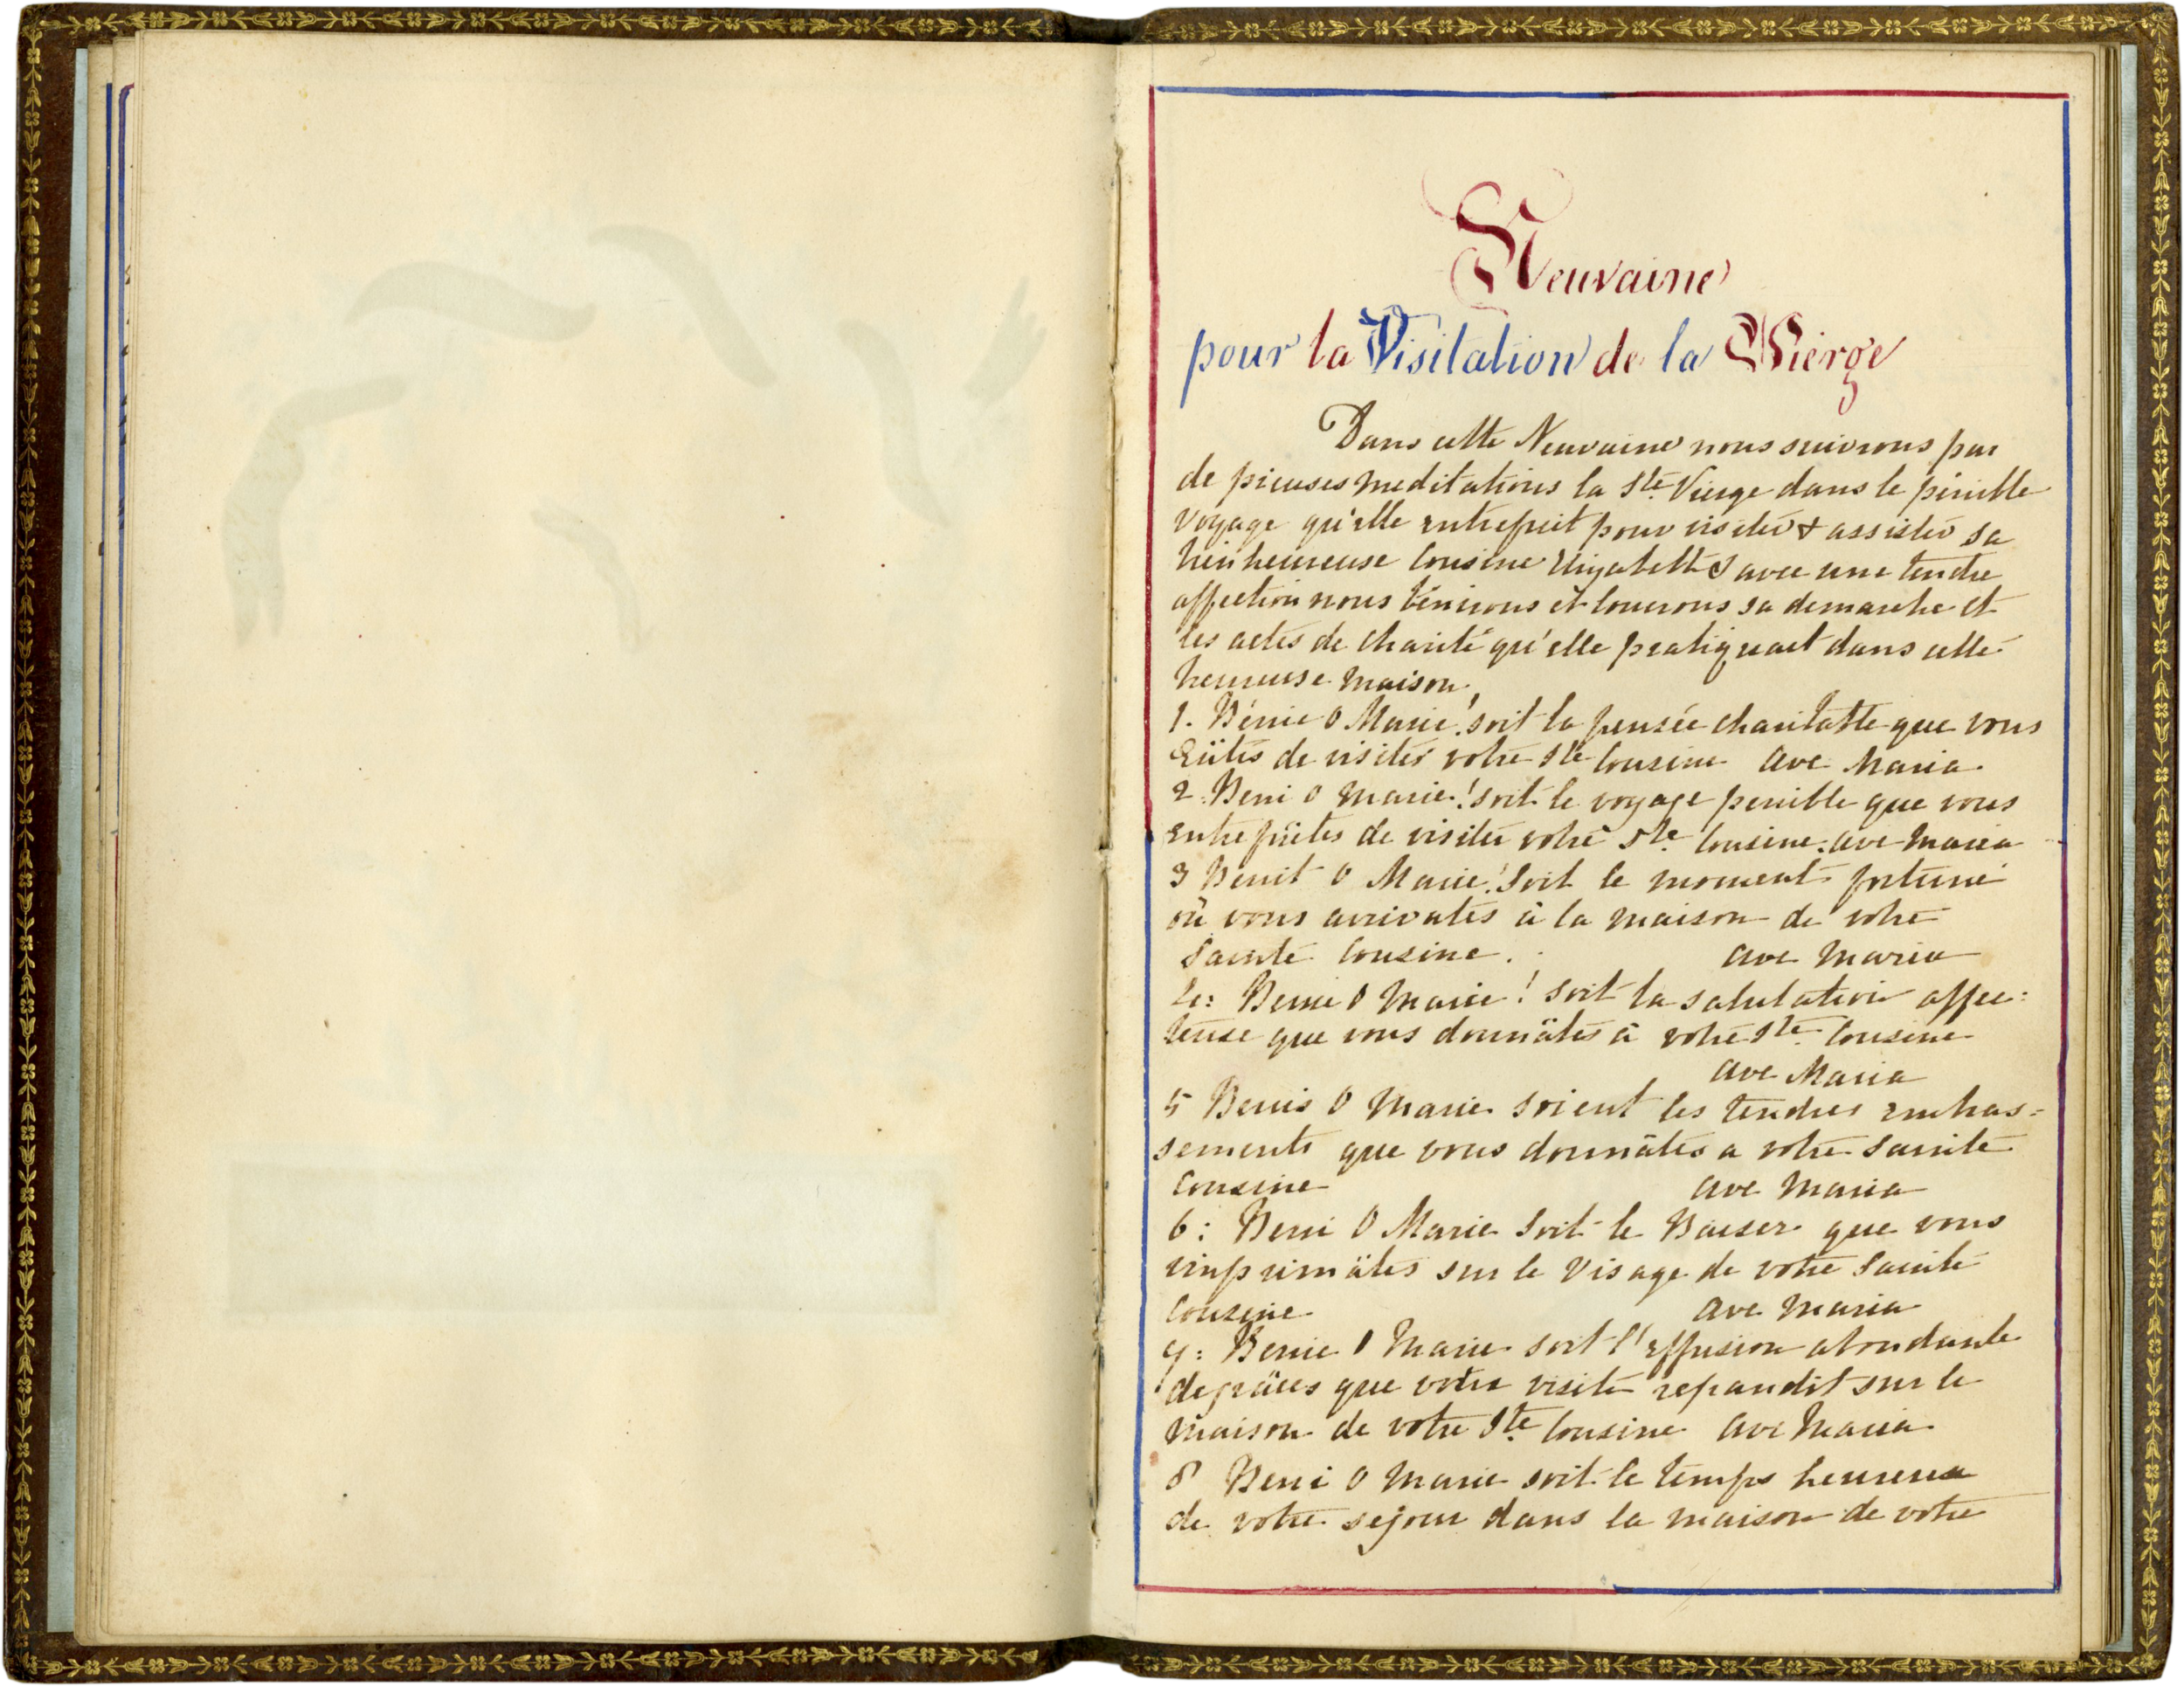 Neuvaine
pour la Visitation de la Vierge
Dans cette Neuvaine nous suivrons par
de pieuses meditations la Ste Vierge dans le pénible
voyage qu'elle entreprit pour visiter & assister sa
bienheureuse Cousine avec une tendre
affection nous bénirons et louerons sa demarche et
les actes de charité qu'elle pratiquait dans cette
heureuse maison.
1. Bénie O Marie! soit la pensée charitable que vous
eûtes de visiter votre Ste Cousine Ave Maria
2. Beni O Marie! soit le voyage penible que vous
entreprîtes de visiter votre Ste Cousine. Ave Maria
3 Benit O Marie! Soit le moment fortuné
où vous arrivates à la maison de votre
Sainte Cousine. Ave Maria
4: Benie O Marie! soit la salutation affec=
teuse que vous donnâtes à votre Ste Cousine
Ave Maria
5 Benis O Marie soient les tendres embras=
sements que vous donnâtes a votre Sainte
Cousine Ave Maria
6: Beni O Marie Soit le Baiser que vous
imprimâtes sur le Visage de votre Sainte
Cousine Ave Maria
7: Benie O Marie soit l'effusion abondante
de grâces que votre visite repandit sur la
maison de votre Ste Cousine Ave Maria
8 Beni O Marie soit le temps heureux
de votre sejour dans la maison de votre